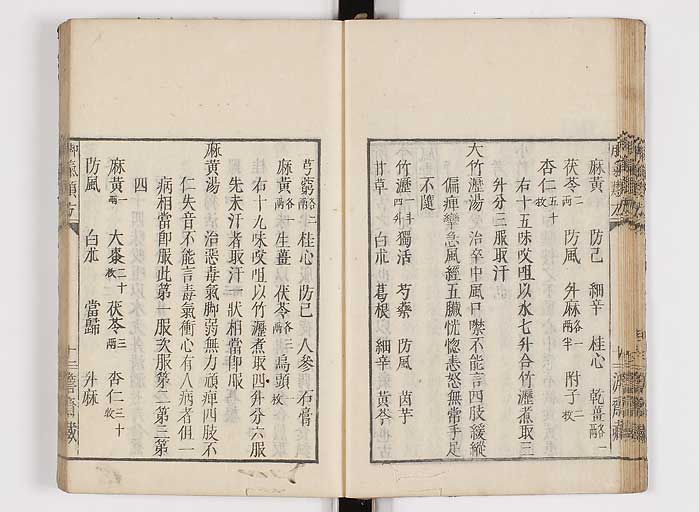 麻黄 防己 細辛 桂心 乾薑各一兩
茯苓二兩 防風 升麻各一兩半 附子二枚
杏仁五十枚
右十五味㕮咀以水七升合竹瀝煮取三
升分三服取汗
大竹瀝湯 治卒中風口噤不能言四肢緩縱
偏痺攣急風經五臓恍惚恚怒無常手足
不隨
竹瀝一斗四升 獨活 芍藥 防風 茵芋
甘草 白朮 葛根 細辛 黄芩
芎藭各二兩 桂心 防己 人參 石膏
麻黄各一兩 生薑 茯苓各三兩 烏頭一枚
右十九味㕮咀以竹瀝煮取四升分六服
先未汗者取汗一狀相當即服
麻黄湯 治惡毒氣脚弱無力頑痺四肢不
仁失音不能言毒氣衝心有人病者但一
病相當即服此第一服次服第二第三第
四
麻黄一兩 大棗二十枚 茯苓三兩 杏仁三十枚
防風 白朮 當歸 升麻